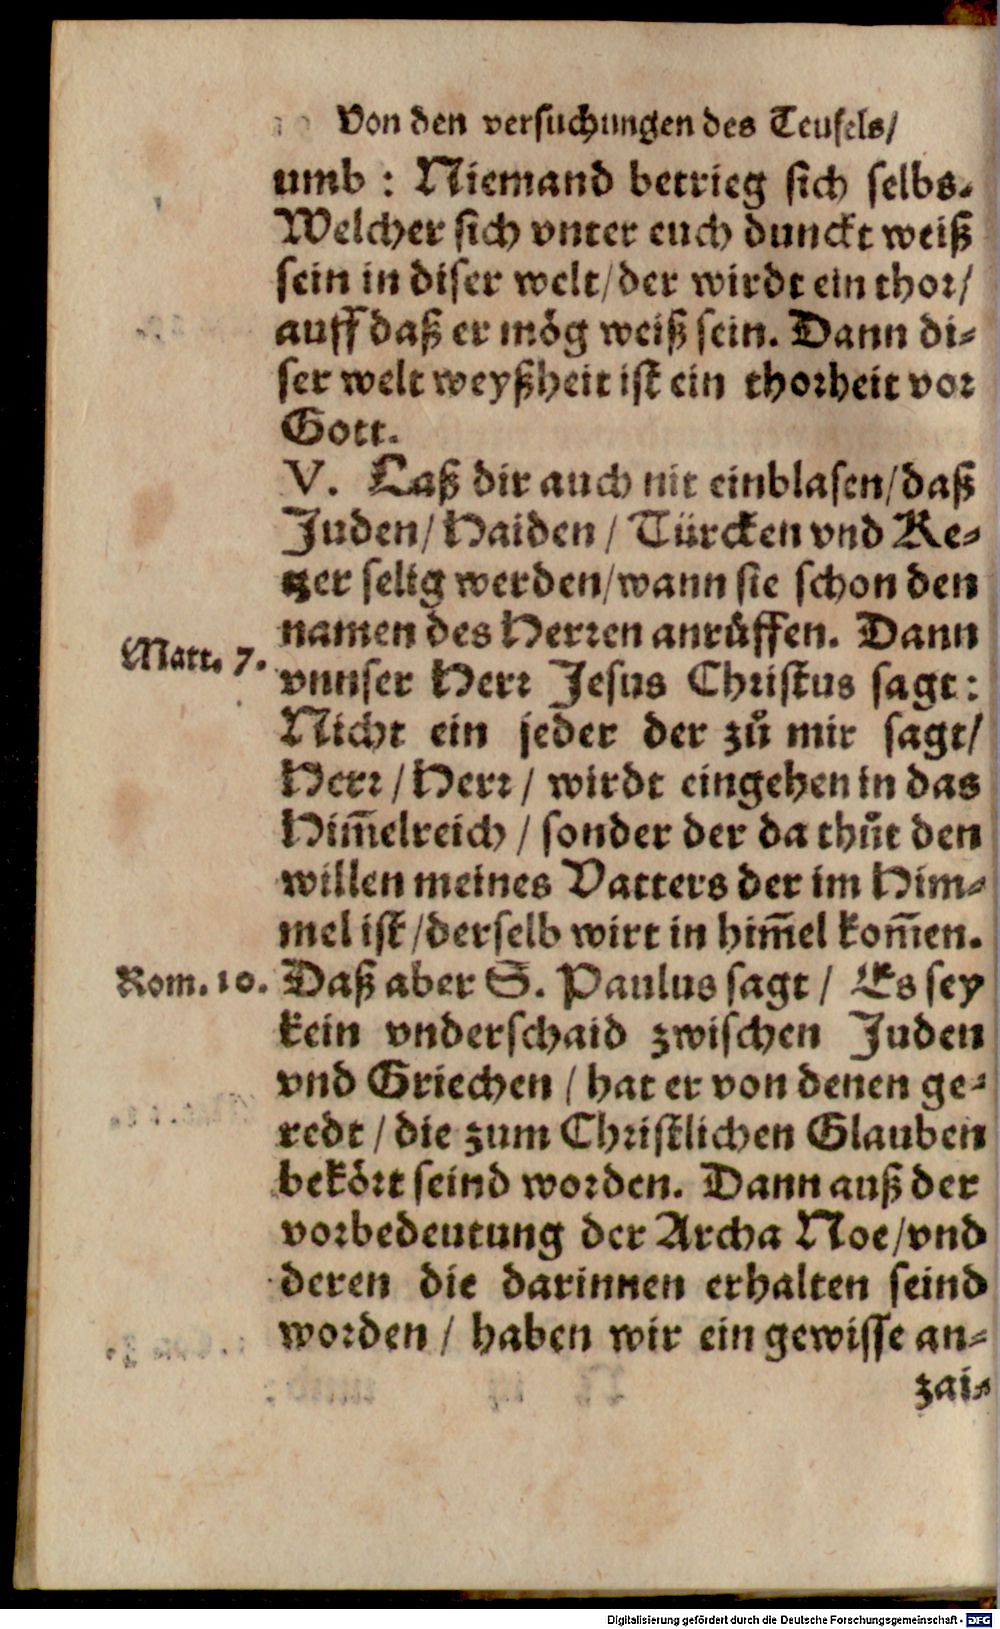 Von den versuchungen des Teufels/
umb : Niemand betrieg sich selbs.
Welcher sich vnter euch dunckt weiß
sein in diser welt/der wirdt ein thor/
auff daß er mög weiß sein. Dann di-
ser welt weyßheit ist ein thorheit vor
Gott.
V. Laß dir auch nit einblasen/daß
Juden/Haiden / Türcken vnd Ke-
tzer selig werden/wann sie schon den
namen des Herren anrůffen. Dann
Matt. 7.
vnnser Herr Jesus Christus sagt:
Nicht ein jeder der zů mir sagt/
Herr / Herr / wirdt eingehen in das
Him̃elreich / sonder der da thůt den
willen meines Vatters der im Him-
mel ist /derselb wirt in him̃el kom̃en.
Rom. 10.
Daß aber S. Paulus sagt / Es sey
kein vnderschaid zwischen Juden
vnd Griechen / hat er von denen ge-
redt / die zum Christlichen Glauben
bekört seind worden. Dann auß der
vorbedeutung der Archa Noe/vnd
deren die darinnen erhalten seind
worden / haben wir ein gewisse an-
zai-
Digitalisierung gefördert durch die Deutsche Forschungsgemeinschaft - DFG